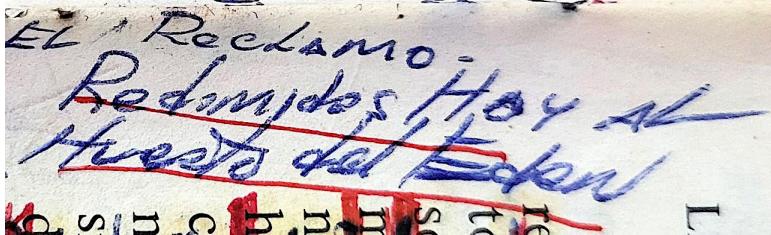 EL RecLAMO.
Redimidos Hoy AL
Huerto del Eden